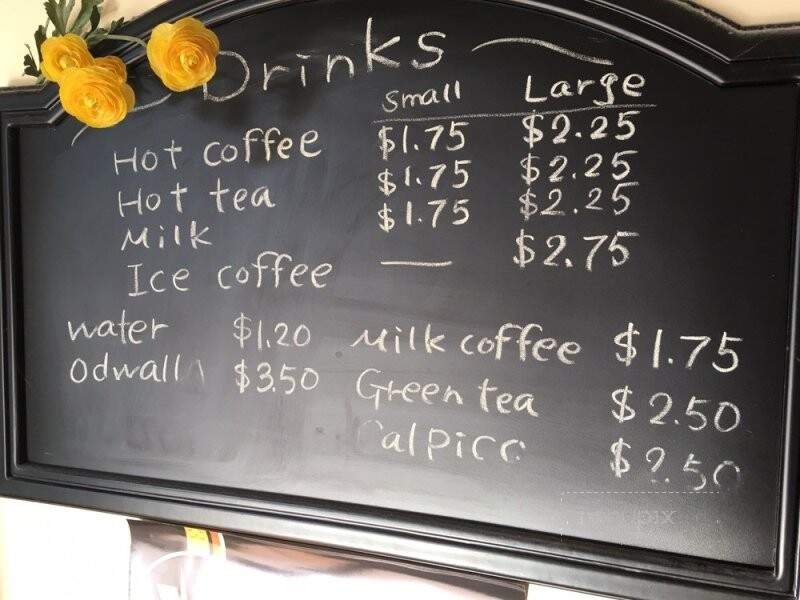 Drinks
Small Large
Hot coffee $1.75 $2.25
Hot tea $1.75 $2.25
Milk $1.75 $2.25
Ice coffee — $2.75
water $1.20
Odwalla $3.50
Milk coffee $1.75
Green tea $2.50
Calpico $2.50